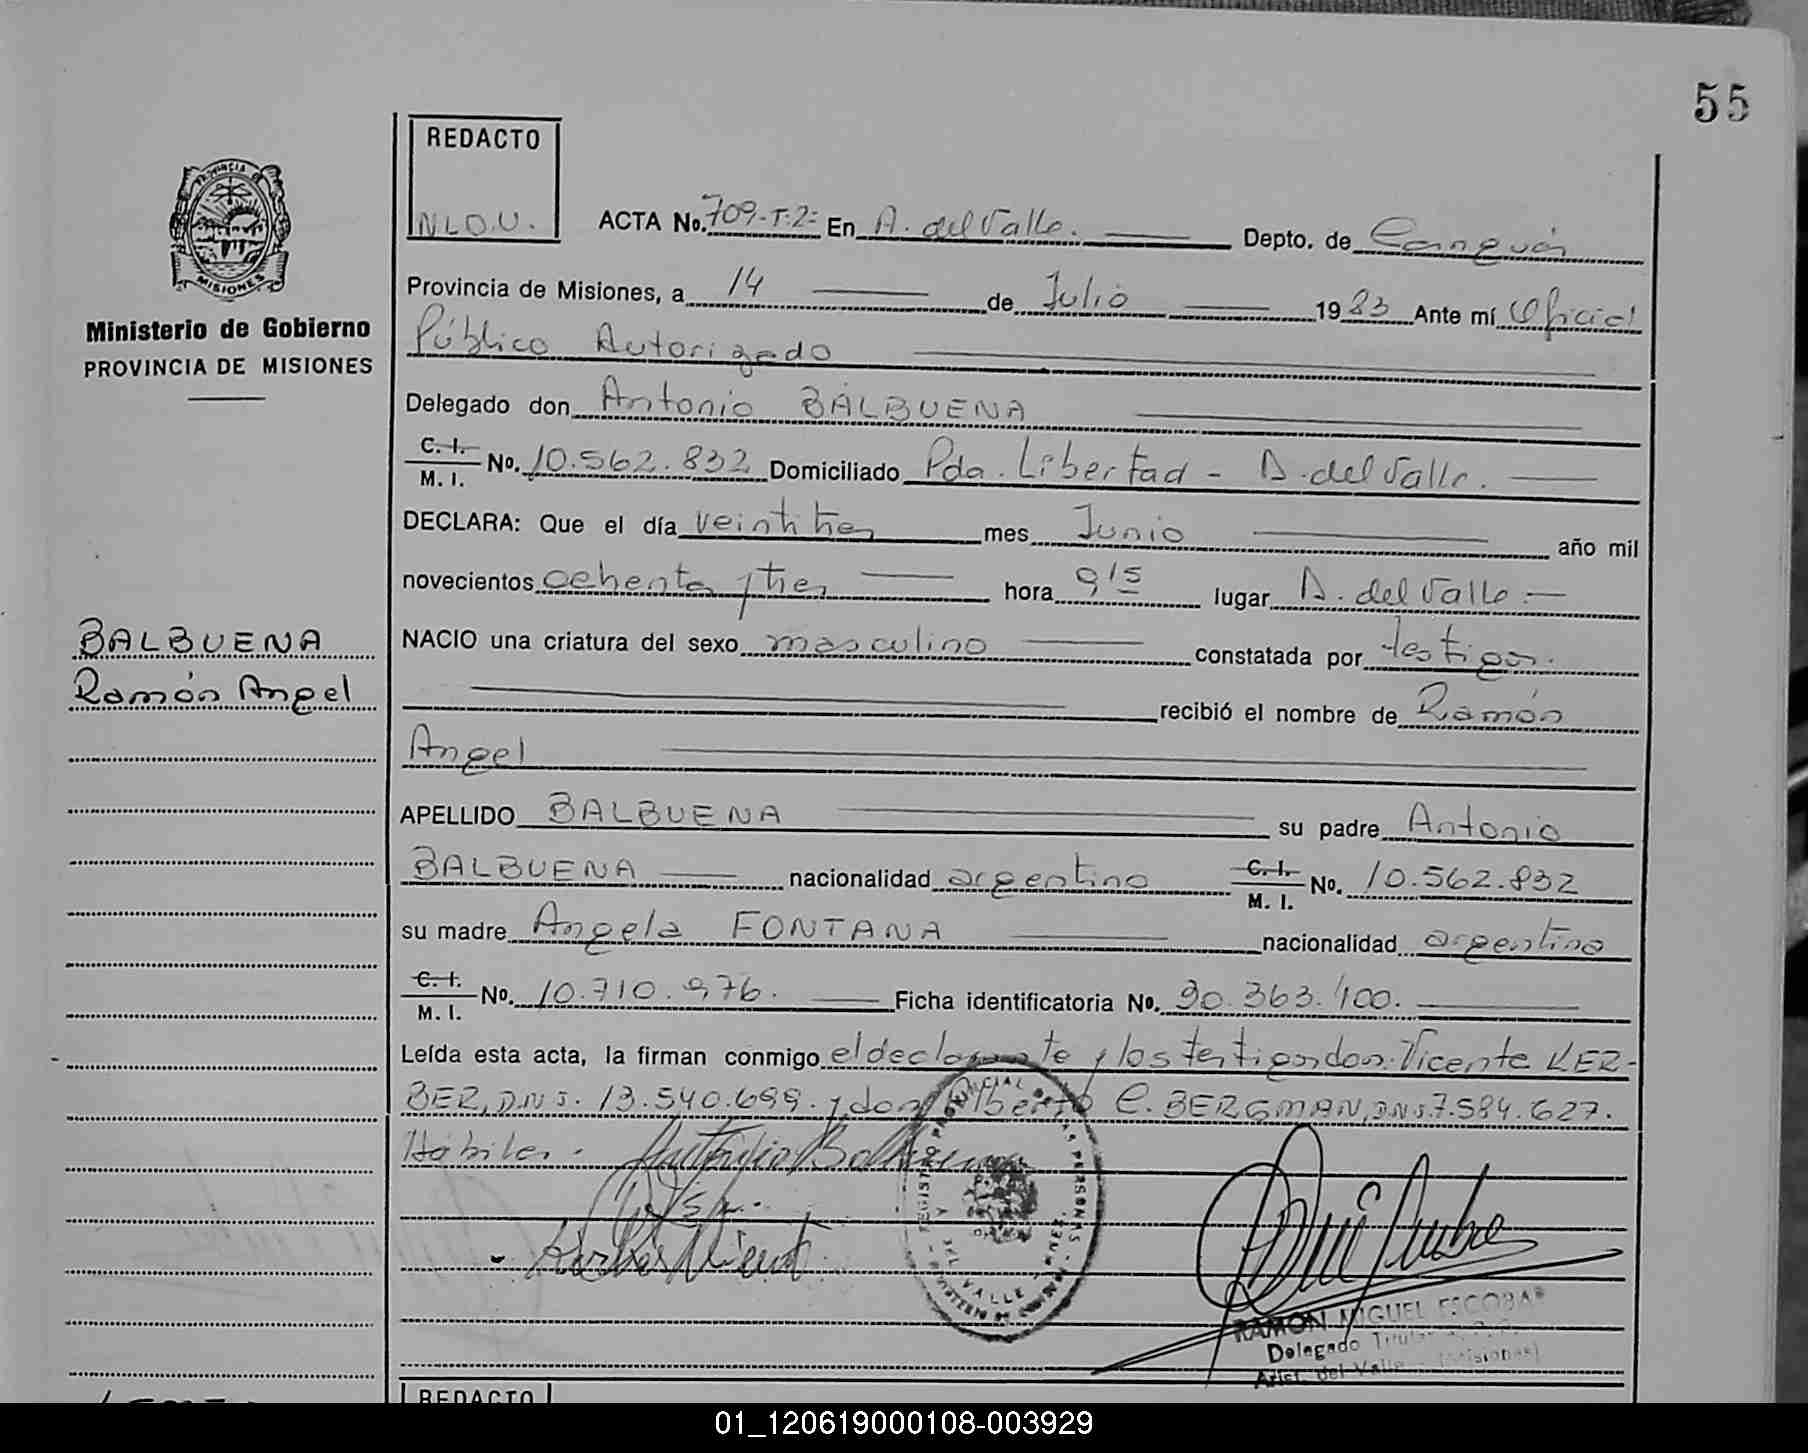 55
REDACTO
N.L.O.U.
PROVINCIA DE
MISIONES
Ministerio de Gobierno
PROVINCIA DE MISIONES
BALBUENA
Ramón Angel
ACTA No. 709-T:2= En A. del Valle. Depto. de Cainguás
Provincia de Misiones, a 14 de Julio 1983 Ante mí Oficial
Público Autorizado
Delegado don Antonio BALBUENA
C. I. M. I. No. 10.562.832 Domiciliado Pda. Libertad - A. del Valle.
DECLARA: Que el día veintitres mes Junio año mil
novecientos ochenta y tres hora 9,15 lugar A. del Valle.
NACIO una criatura del sexo masculino constatada por testigos.
recibió el nombre de Ramón
Angel
APELLIDO BALBUENA su padre Antonio
BALBUENA nacionalidad argentino C. I. M. I. No. 10.562.832
su madre Angela FONTANA nacionalidad argentina
C. I. M. I. No. 10.710.976. Ficha identificatoria No. 90.363.100.
Leída esta acta, la firman conmigo el declarante y los testigos don. Vicente KER-
BER, D.N.I. 13.540.699. y don Alberto C. BERGMAN, D.N.I. 7.584.627.
Hábiles.
Antonio Balbuena
Kerber Vicent
RAMON MIGUEL ESCOBAR
Delegado Titular
Arist. del Valle - (Misiones)
REDACTO
01_120619000108-003929